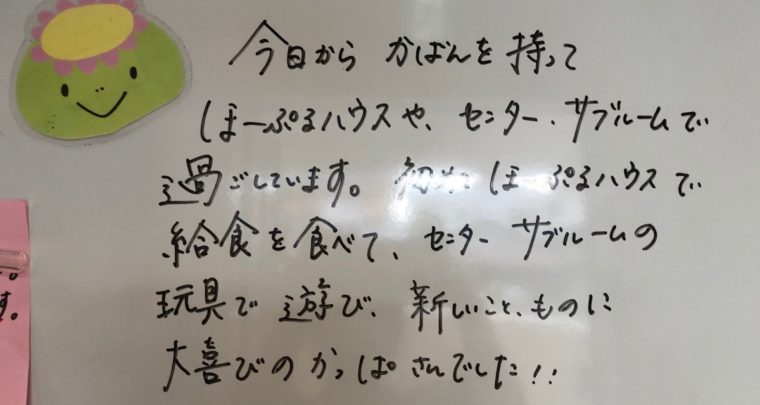 今日から かばんを 持って
ほーぷるハウスや、センター・サブルームで
過ごしています。初めて ほーぷるハウスで
給食を食べて、センター サブルームの
玩具で 遊び、新しいこと、ものに
大喜びの かっぱさんでした!!
。
す。